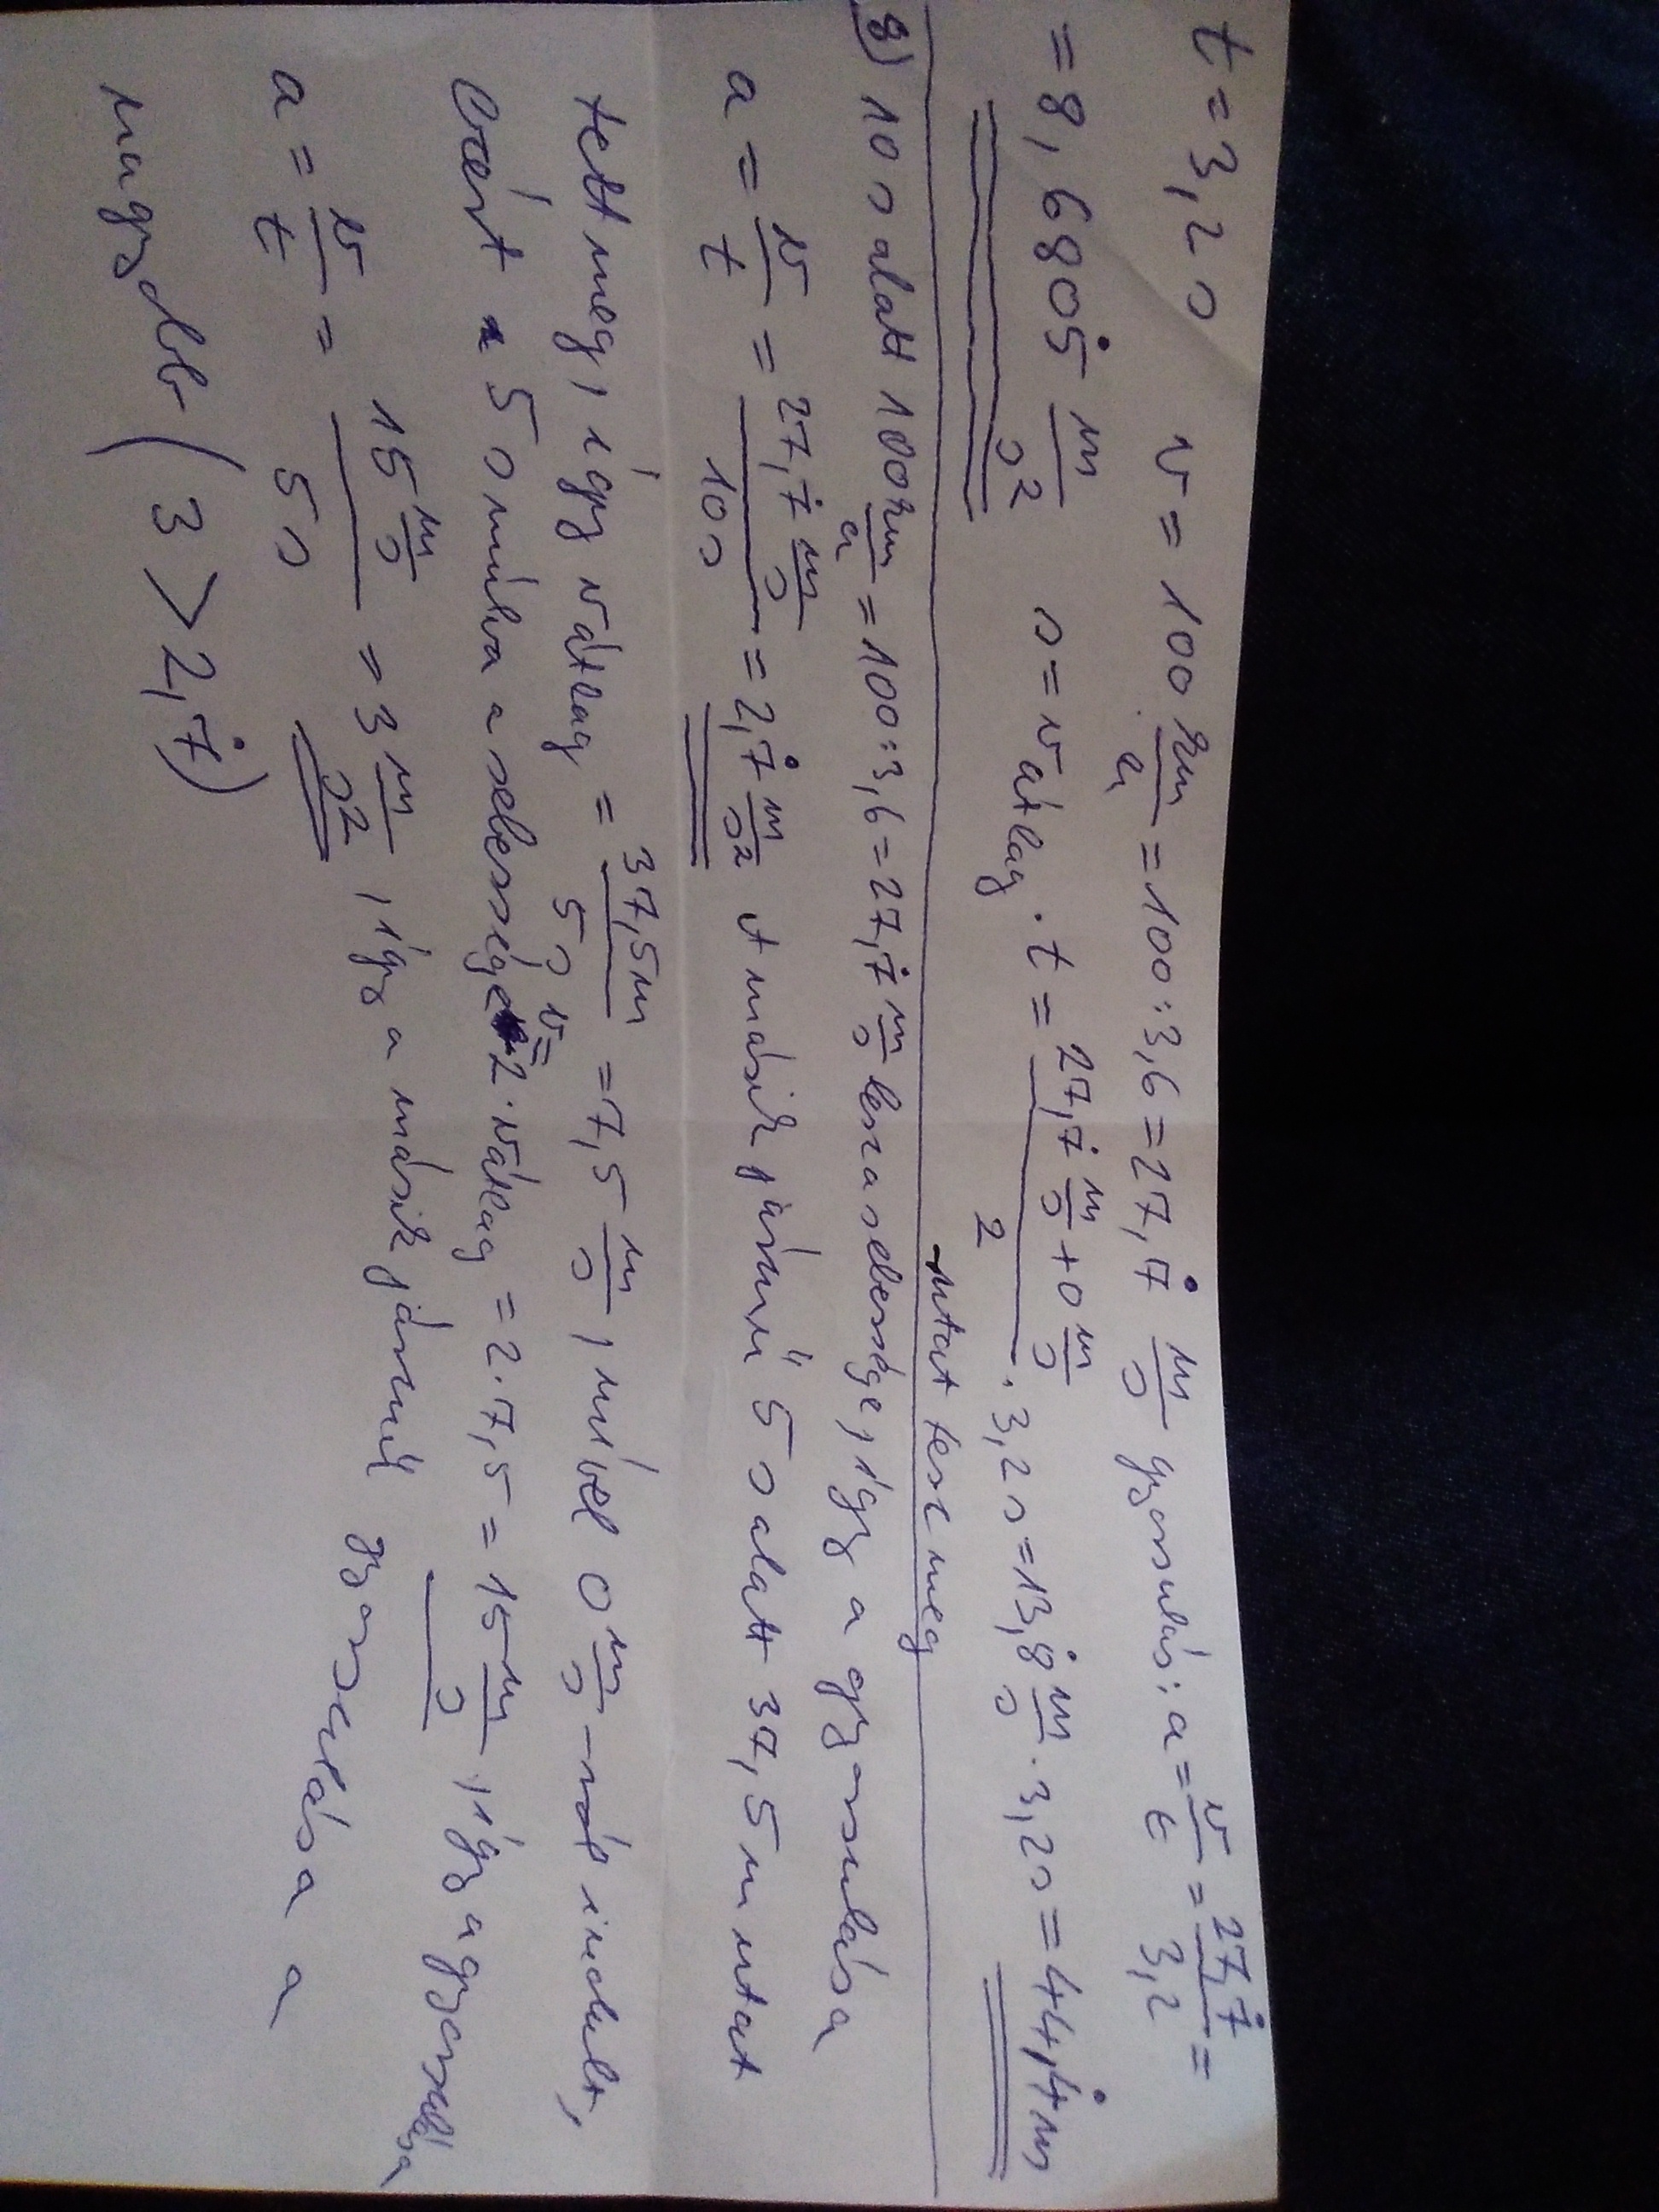 t = 3,2 s v = 100 km/h = 100 : 3,6 = 27,7̇ m/s gyorsulás: a = v/t = 27,7̇/3,2 =
= 8,6805̇ m/s² s = v átlag · t = (27,7̇ m/s + 0 m/s)/2 · 3,2 s = 13,8̇ m/s · 3,2 s = 44,4̇ m
utat tesz meg
8) 10 s alatt 100 km/h = 100 : 3,6 = 27,7̇ m/s lesz a sebessége, így a gyorsulása
a = v/t = 27,7̇ m/s / 10 s = 2,7̇ m/s² A másik jármű 5 s alatt 37,5 m utat
tett meg, így v átlag = 37,5 m / 5 s = 7,5 m/s, mivel 0 m/s-ról indult,
ezért a 5 s múlva a sebessége v = 2 · v átlag = 2 · 7,5 = 15 m/s, így a gyorsulása
a = v/t = 15 m/s / 5 s = 3 m/s², így a másik jármű gyorsulása a
nagyobb (3 > 2,7̇)